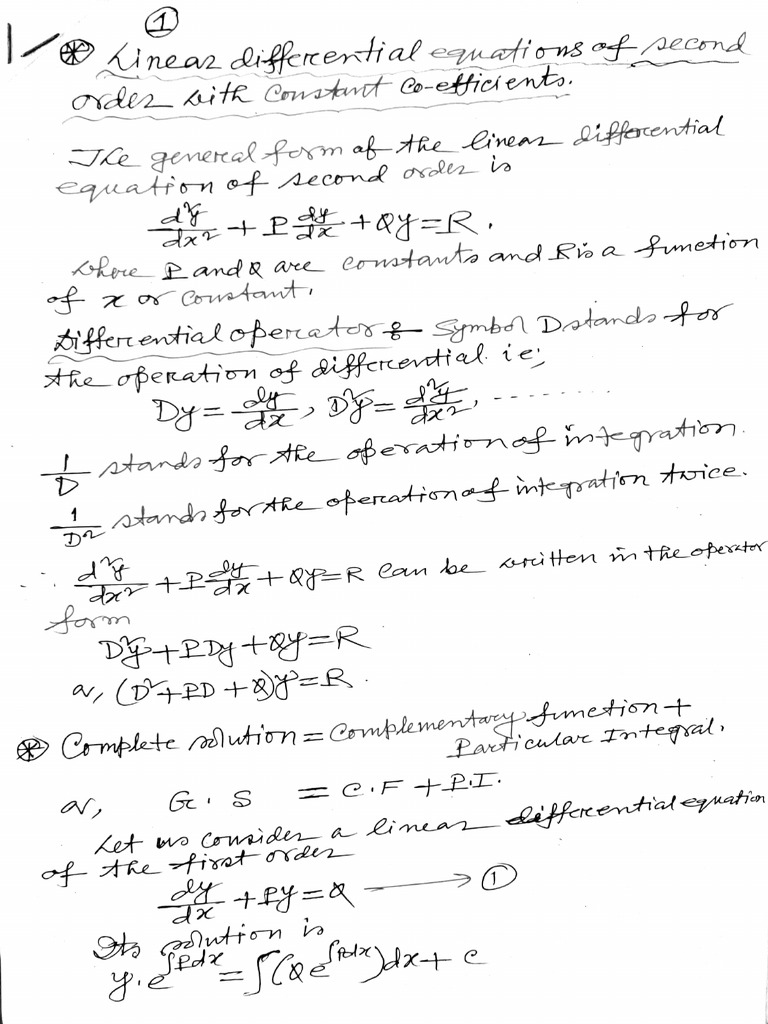 ①
1/ ⊛ Linear differential equations of second
order with constant co-efficients.
The general form of the linear differential
equation of second order is
d²y/dx² + P dy/dx + Qy = R.
where P and Q are constants and R is a function
of x or constant.
Differential operator :- Symbol D stands for
the operation of differential. ie;
Dy = dy/dx, D²y = d²y/dx², ........
1/D stands for the operation of integration.
1/D² stands for the operation of integration twice.
∴ d²y/dx² + P dy/dx + Qy = R can be written in the operator
form
D²y + PDy + Qy = R
or, (D² + PD + Q)y = R.
⊛ Complete solution = Complementary function +
Particular Integral.
or, G.S = C.F + P.I.
Let us consider a linear differential equation
of the first order
dy/dx + Py = Q ⟶ ①
Its solution is
y.e^∫Pdx = ∫(Q e^∫Pdx)dx + c